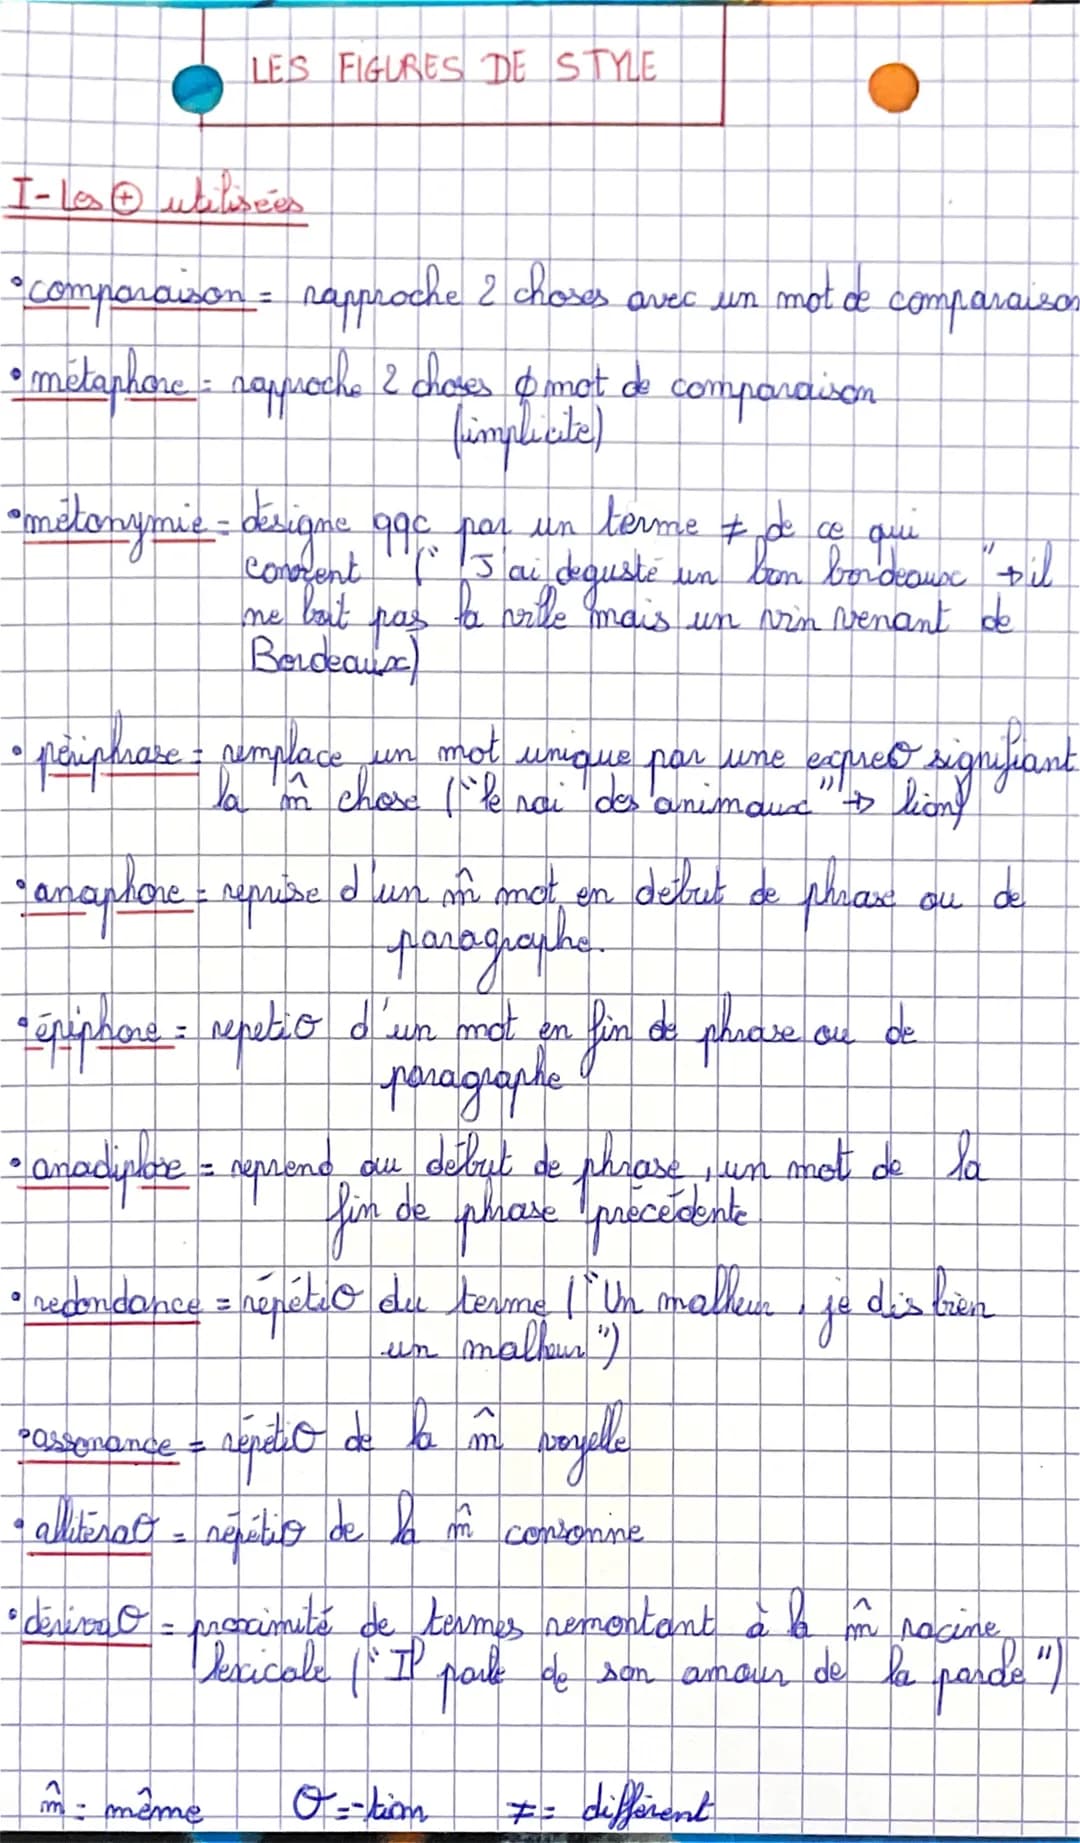 LES FIGURES DE STYLE
I- Les ⊕ utilisées
• comparaison = rapproche 2 choses avec un mot de comparaison
• métaphore = rapproche 2 choses ∅ mot de comparaison
(implicite)
• métonymie = désigne qqc par un terme ≠ de ce qui
convient ("J'ai degusté un bon bordeaux" → il
ne boit pas la ville mais un vin venant de
Bordeaux)
• périphrase = remplace un mot unique par une expresσ signifiant
la m̂ chose ("le roi des animaux" → lion)
• anaphore = reprise d'un m̂ mot en début de phrase ou de
paragraphe.
• épiphore = repetiσ d'un mot en fin de phrase ou de
paragraphe
• anadiplose = reprend au début de phrase, un mot de la
fin de phrase précédente
• redondance = répétiσ du terme ("Un malheur, je dis bien
un malheur")
• assonance = répétiσ de la m̂ voyelle
• allitéraσ = répétiσ de la m̂ consonne
• dérivaσ = proximité de termes remontant à la m̂ racine
lexicale ("Il parle de son amour de la parole")
m̂ = même σ = -tion ≠ = différent